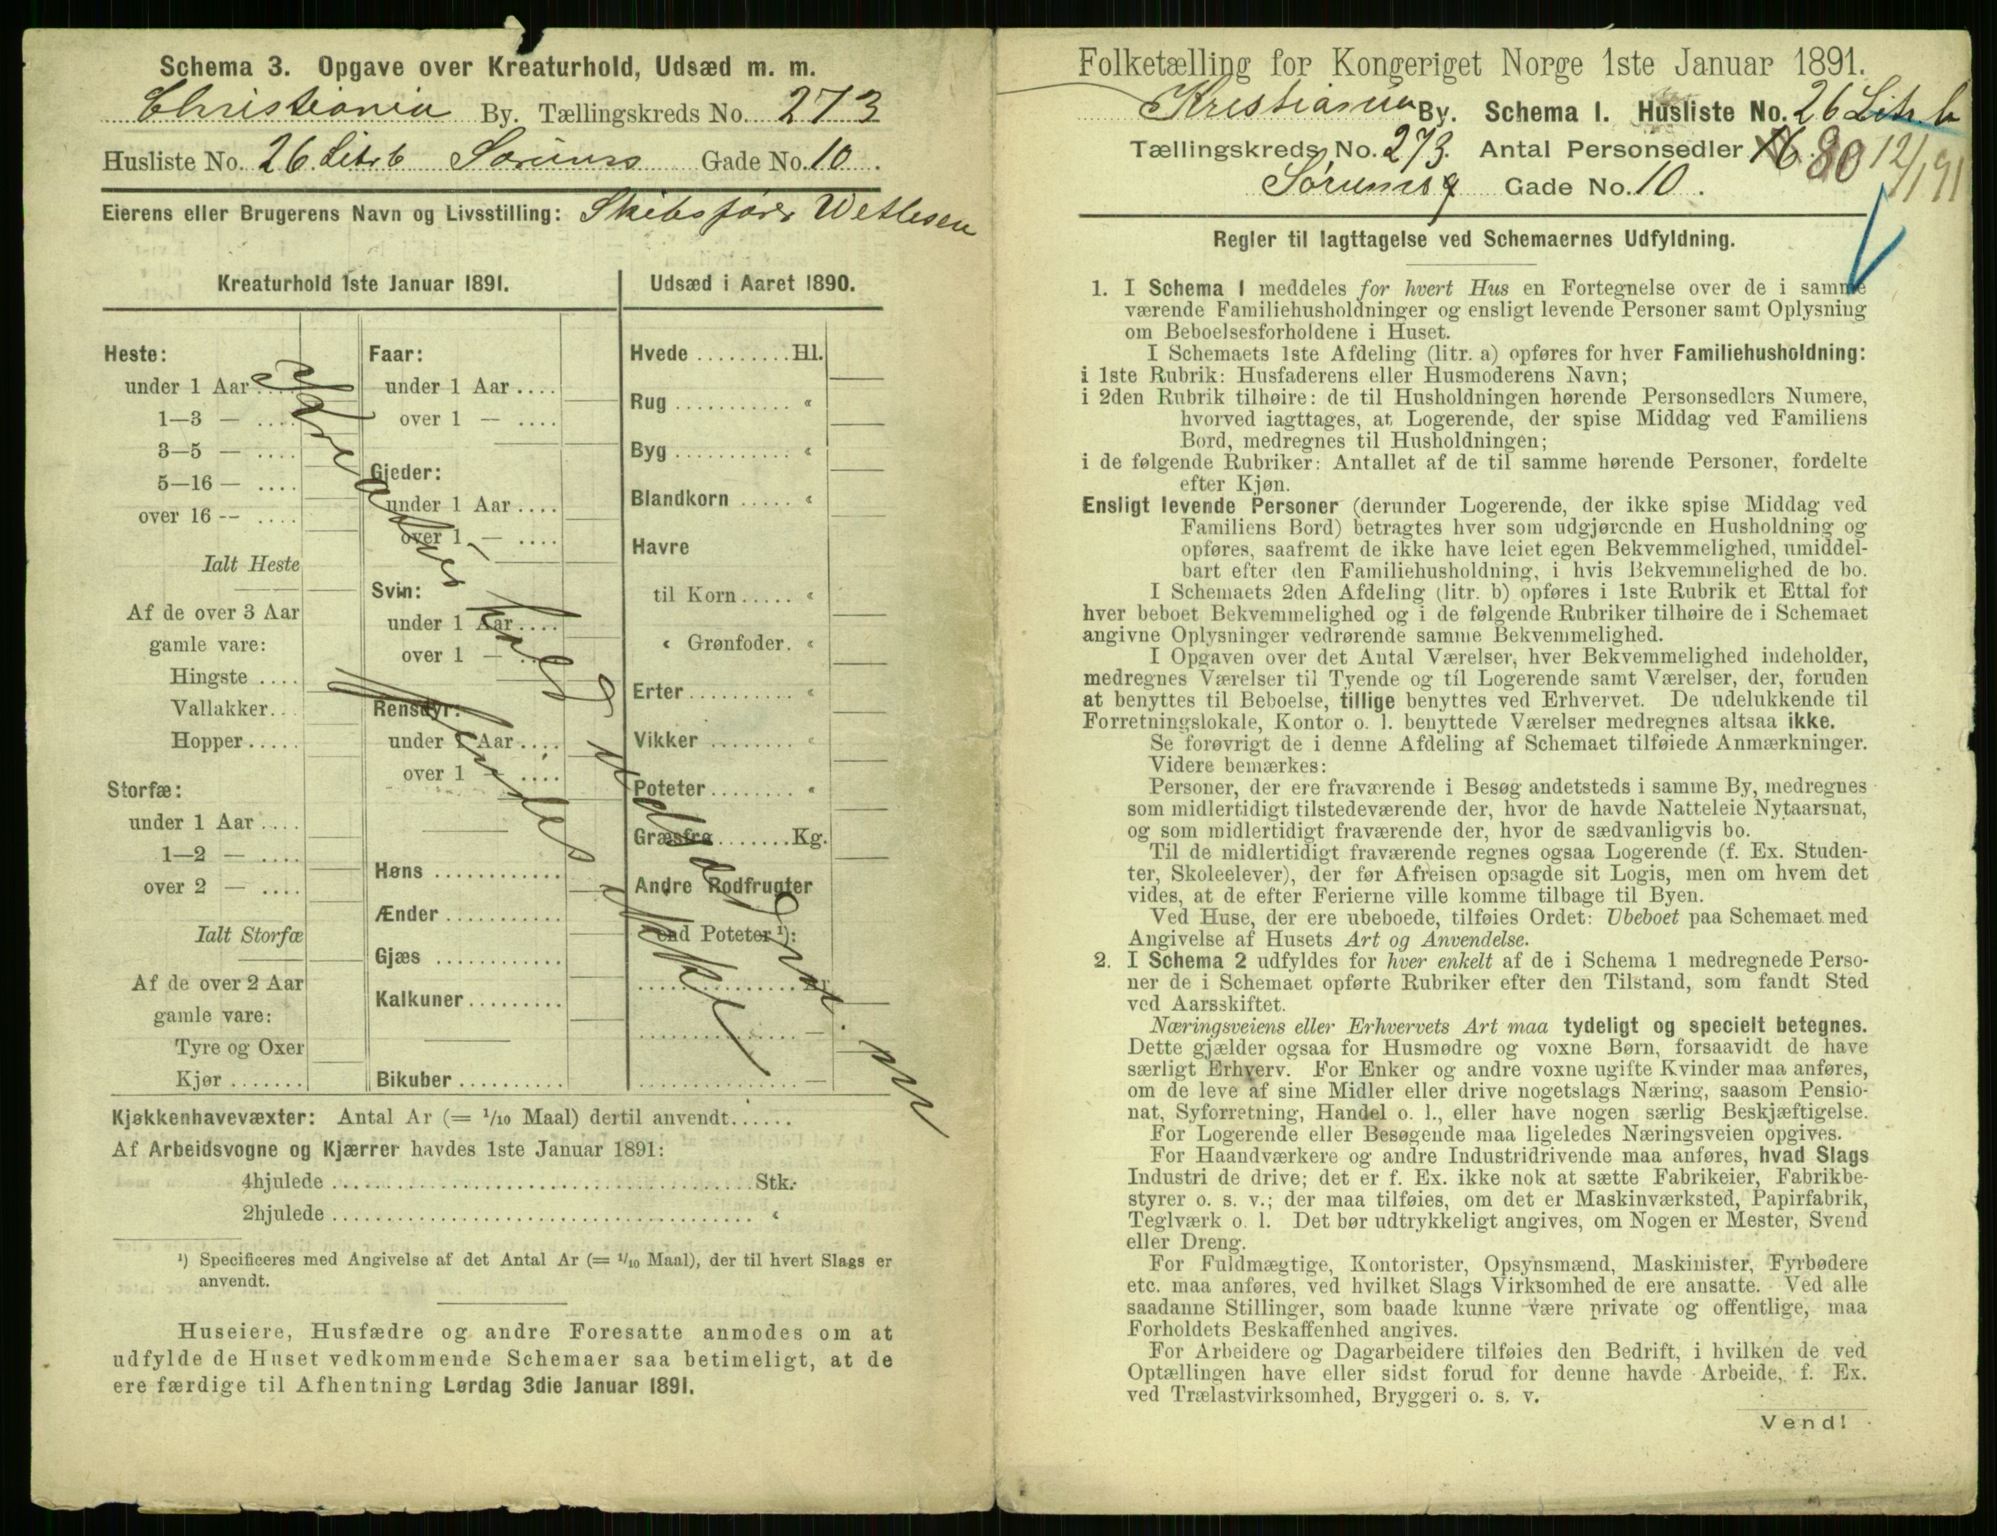 Schema 3. Opgave over Kreaturhold, Udsæd m. m.
Christiania By. Tællingskreds No. 273
Husliste No. 26 Litr b Sørums Gade No. 10.
Eierens eller Brugerens Navn og Livsstilling: Skibsfører Wetlesen
Kreaturhold 1ste Januar 1891.
Heste:
under 1 Aar ....
1—3 — ....
3—5 — ....
5—16 — ....
over 16 -- ....
Ialt Heste
Af de over 3 Aar
gamle vare:
Hingste ....
Vallakker...
Hopper.....
Storfæ:
under 1 Aar ....
1—2 — ....
over 2 — ....
Ialt Storfæ
Af de over 2 Aar
gamle vare:
Tyre og Oxer
Kjør .......
Faar:
under 1 Aar ....
over 1 — ....
Gjeder:
under 1 Aar ....
over 1 — ....
Svin:
under 1 Aar ....
over 1 — ....
Rensdyr:
under 1 Aar ....
over 1 — ....
Høns ............
Ænder ...........
Gjæs ............
Kalkuner.........
Bikuber..........
Udsæd i Aaret 1890.
Hvede .........Hl.
Rug ........... «
Byg ........... «
Blandkorn ..... «
Havre
til Korn ..... «
« Grønfoder. «
Erter ......... «
Vikker ........ «
Poteter........ «
Græsfrø .......Kg.
Andre Rodfrugter
end Poteter ¹):
............... Ar
............... —
............... —
Kjøkkenhavevæxter: Antal Ar (= 1/10 Maal) dertil anvendt......
Af Arbeidsvogne og Kjærrer havdes 1ste Januar 1891:
4hjulede ........................................Stk.
2hjulede ........................................ «
¹) Specificeres med Angivelse af det Antal Ar (= 1/10 Maal), der til hvert Slags er
anvendt.
Huseiere, Husfædre og andre Foresatte anmodes om at
udfylde de Huset vedkommende Schemaer saa betimeligt, at de
ere færdige til Afhentning Lørdag 3die Januar 1891.
Folketælling for Kongeriget Norge 1ste Januar 1891.
Kristiania By. Schema I. Husliste No. 26 Litr. b
Tællingskreds No. 273. Antal Personsedler 80 12/1 91
Sørumsg Gade No. 10.
Regler til Iagttagelse ved Schemaernes Udfyldning.
1. I Schema I meddeles for hvert Hus en Fortegnelse over de i samme
værende Familiehusholdninger og ensligt levende Personer samt Oplysning
om Beboelsesforholdene i Huset.
I Schemaets 1ste Afdeling (litr. a) opføres for hver Familiehusholdning:
i 1ste Rubrik: Husfaderens eller Husmoderens Navn;
i 2den Rubrik tilhøire: de til Husholdningen hørende Personsedlers Numere,
hvorved iagttages, at Logerende, der spise Middag ved Familiens
Bord, medregnes til Husholdningen;
i de følgende Rubriker: Antallet af de til samme hørende Personer, fordelte
efter Kjøn.
Ensligt levende Personer (derunder Logerende, der ikke spise Middag ved
Familiens Bord) betragtes hver som udgjørende en Husholdning og
opføres, saafremt de ikke have leiet egen Bekvemmelighed, umiddel-
bart efter den Familiehusholdning, i hvis Bekvemmelighed de bo.
I Schemaets 2den Afdeling (litr. b) opføres i 1ste Rubrik et Ettal for
hver beboet Bekvemmelighed og i de følgende Rubriker tilhøire de i Schemaet
angivne Oplysninger vedrørende samme Bekvemmelighed.
I Opgaven over det Antal Værelser, hver Bekvemmelighed indeholder,
medregnes Værelser til Tyende og til Logerende samt Værelser, der, foruden
at benyttes til Beboelse, tillige benyttes ved Erhvervet. De udelukkende til
Forretningslokale, Kontor o. l. benyttede Værelser medregnes altsaa ikke.
Se forøvrigt de i denne Afdeling af Schemaet tilføiede Anmærkninger.
Videre bemærkes:
Personer, der ere fraværende i Besøg andetsteds i samme By, medregnes
som midlertidigt tilstedeværende der, hvor de havde Natteleie Nytaarsnat,
og som midlertidigt fraværende der, hvor de sædvanligvis bo.
Til de midlertidigt fraværende regnes ogsaa Logerende (f. Ex. Studen-
ter, Skoleelever), der før Afreisen opsagde sit Logis, men om hvem det
vides, at de efter Ferierne ville komme tilbage til Byen.
Ved Huse, der ere ubeboede, tilføies Ordet: Ubeboet paa Schemaet med
Angivelse af Husets Art og Anvendelse.
2. I Schema 2 udfyldes for hver enkelt af de i Schema 1 medregnede Perso-
ner de i Schemaet opførte Rubriker efter den Tilstand, som fandt Sted
ved Aarsskiftet.
Næringsveiens eller Erhvervets Art maa tydeligt og specielt betegnes.
Dette gjælder ogsaa for Husmødre og voxne Børn, forsaavidt de have
særligt Erhverv. For Enker og andre voxne ugifte Kvinder maa anføres,
om de leve af sine Midler eller drive nogetslags Næring, saasom Pensio-
nat, Syforretning, Handel o. l., eller have nogen særlig Beskjæftigelse.
For Logerende eller Besøgende maa ligeledes Næringsveien opgives.
For Haandværkere og andre Industridrivende maa anføres, hvad Slags
Industri de drive; det er f. Ex. ikke nok at sætte Fabrikeier, Fabrikbe-
styrer o. s. v.; der maa tilføies, om det er Maskinværksted, Papirfabrik,
Teglværk o. l. Det bør udtrykkeligt angives, om Nogen er Mester, Svend
eller Dreng.
For Fuldmægtige, Kontorister, Opsynsmænd, Maskinister, Fyrbødere
etc. maa anføres, ved hvilket Slags Virksomhed de ere ansatte. Ved alle
saadanne Stillinger, som baade kunne være private og offentlige, maa
Forholdets Beskaffenhed angives.
For Arbeidere og Dagarbeidere tilføies den Bedrift, i hvilken de ved
Optællingen have eller sidst forud for denne havde Arbeide, f. Ex.
ved Trælastvirksomhed, Bryggeri o. s. v.
Vend!